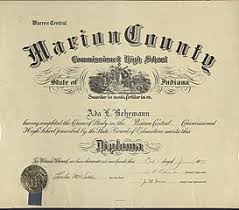 Warren Central
Marion County
Commissioned High School
State of Indiana
Suaviter in modo, fortiter in re.
Ada L. Behymann
having completed the Course of Study in the Warren Central Commissioned
High School prescribed by the State Board of Education merits this
Diploma
In Witness Whereof, we have hereunto set our hands this day of June